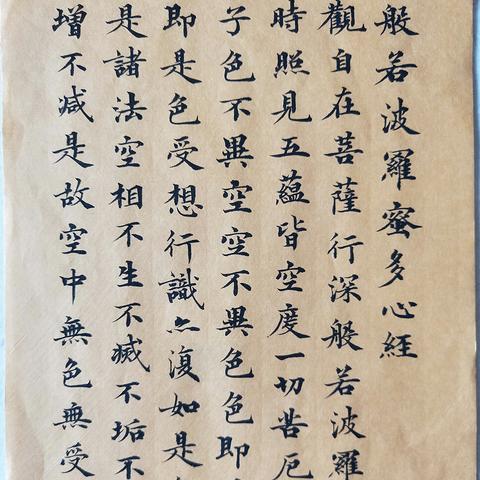 般若波羅蜜多心経
觀自在菩薩行深般若波羅
時照見五蘊皆空度一切苦厄
子色不異空空不異色色即
即是色受想行識亦復如是
是諸法空相不生不滅不垢不
增不减是故空中無色無受